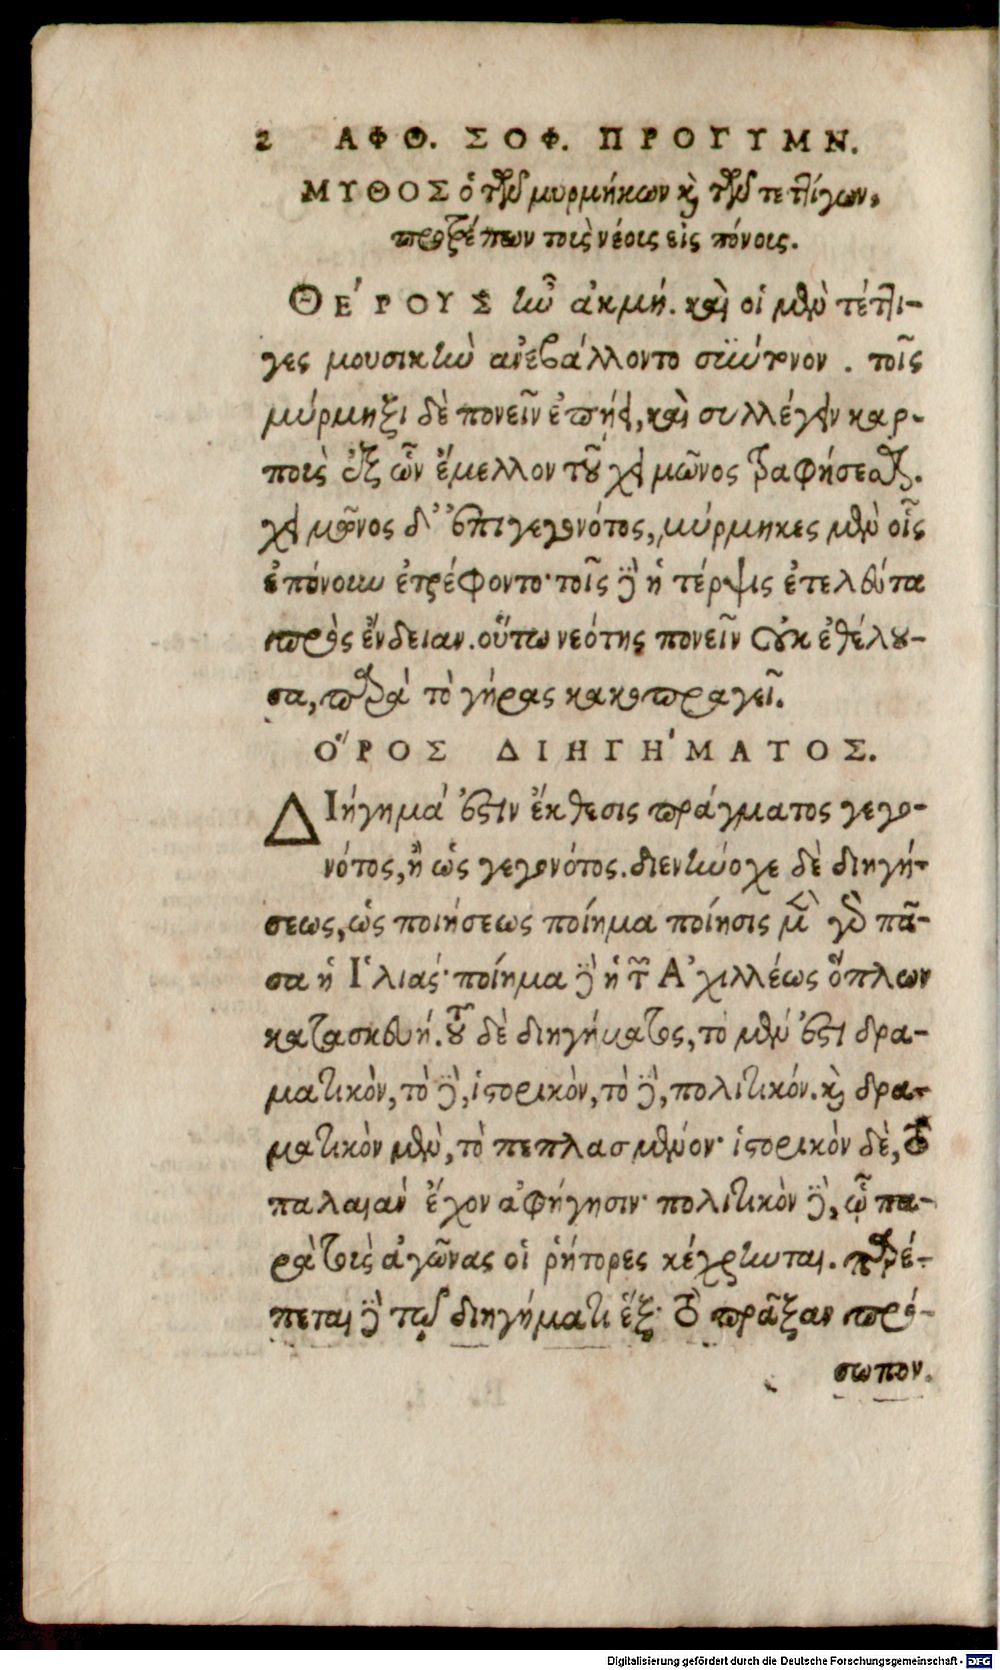 2 ΑΦΘ. ΣΟΦ. ΠΡΟΓΥΜΝ.
ΜΥΘΟΣ ὁ τῶν μυρμήκων καὶ τῶν τεττίγων,
προτρέπων τοὺς νέους εἰς πόνους.
ΘΕ΄ΡΟΥΣ ἦν ἀκμή. καὶ οἱ μὲν τέττι-
γες μουσικὴν ἀνεβάλλοντο σύντονον. τοῖς
μύρμηξι δὲ πονεῖν ἐπῄει, καὶ συλλέγειν καρ-
ποὺς ἐξ ὧν ἔμελλον τοῦ χειμῶνος τραφήσεσθαι.
χειμῶνος δ' ἐπιγεγονότος, μύρμηκες μὲν οἷς
ἐπόνουν ἐτρέφοντο· τοῖς δὲ ἡ τέρψις ἐτελεύτα
πρὸς ἔνδειαν. οὕτω νεότης πονεῖν οὐκ ἐθέλου-
σα, παρὰ τὸ γήρας κακοπραγεῖ.
Ο῞ΡΟΣ ΔΙΗΓΗ΄ΜΑΤΟΣ.
ΔΙήγημά ἐστιν ἔκθεσις πράγματος γεγο-
νότος, ἢ ὡς γεγονότος. διενήνοχε δὲ διηγή-
σεως, ὡς ποιήσεως ποίημα ποίησις μὲν γὰρ πᾶ-
σα ἡ Ἰλιάς· ποίημα δὲ ἡ τῶν Ἀχιλλέως ὅπλων
κατασκευή. τοῦ δὲ διηγήματος, τὸ μέν ἐστι δρα-
ματικὸν, τὸ δὲ, ἱστορικὸν, τὸ δὲ, πολιτικόν. καὶ δρα-
ματικὸν μὲν, τὸ πεπλασμένον· ἱστορικὸν δὲ, τὸ
παλαιὰν ἔχον ἀφήγησιν· πολιτικὸν δὲ, ᾧ πα-
ρὰ τοὺς ἀγῶνας οἱ ῥήτορες κέχρηνται. παρέ-
πεται δὲ τῷ διηγήματι ἕξ· τὸ πρᾶξαν πρό-
σωπον.
Digitalisierung gefördert durch die Deutsche Forschungsgemeinschaft - DFG